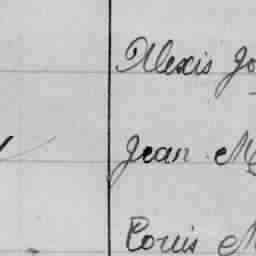 Alexis Jo
Jean M
Louis M